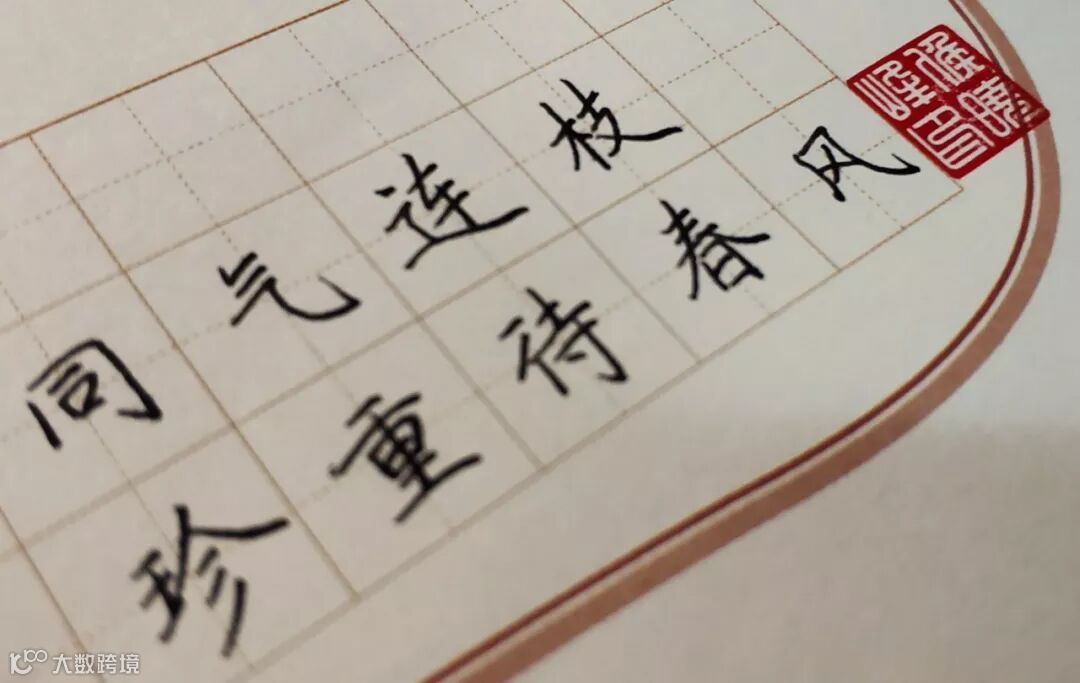 同气连枝
珍重待春风
大数跨境